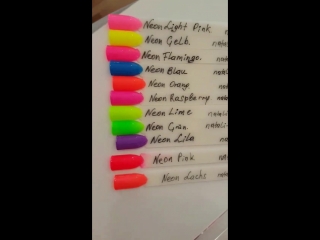 Neon Light Pink
Neon Gelb. natali
Neon Flamingo.
Neon Blau
Neon Orang
Neon Raspberry
Neon Lime natali
Neon Grun. natali
Neon Lila
Neon Pink
Neon Lachs